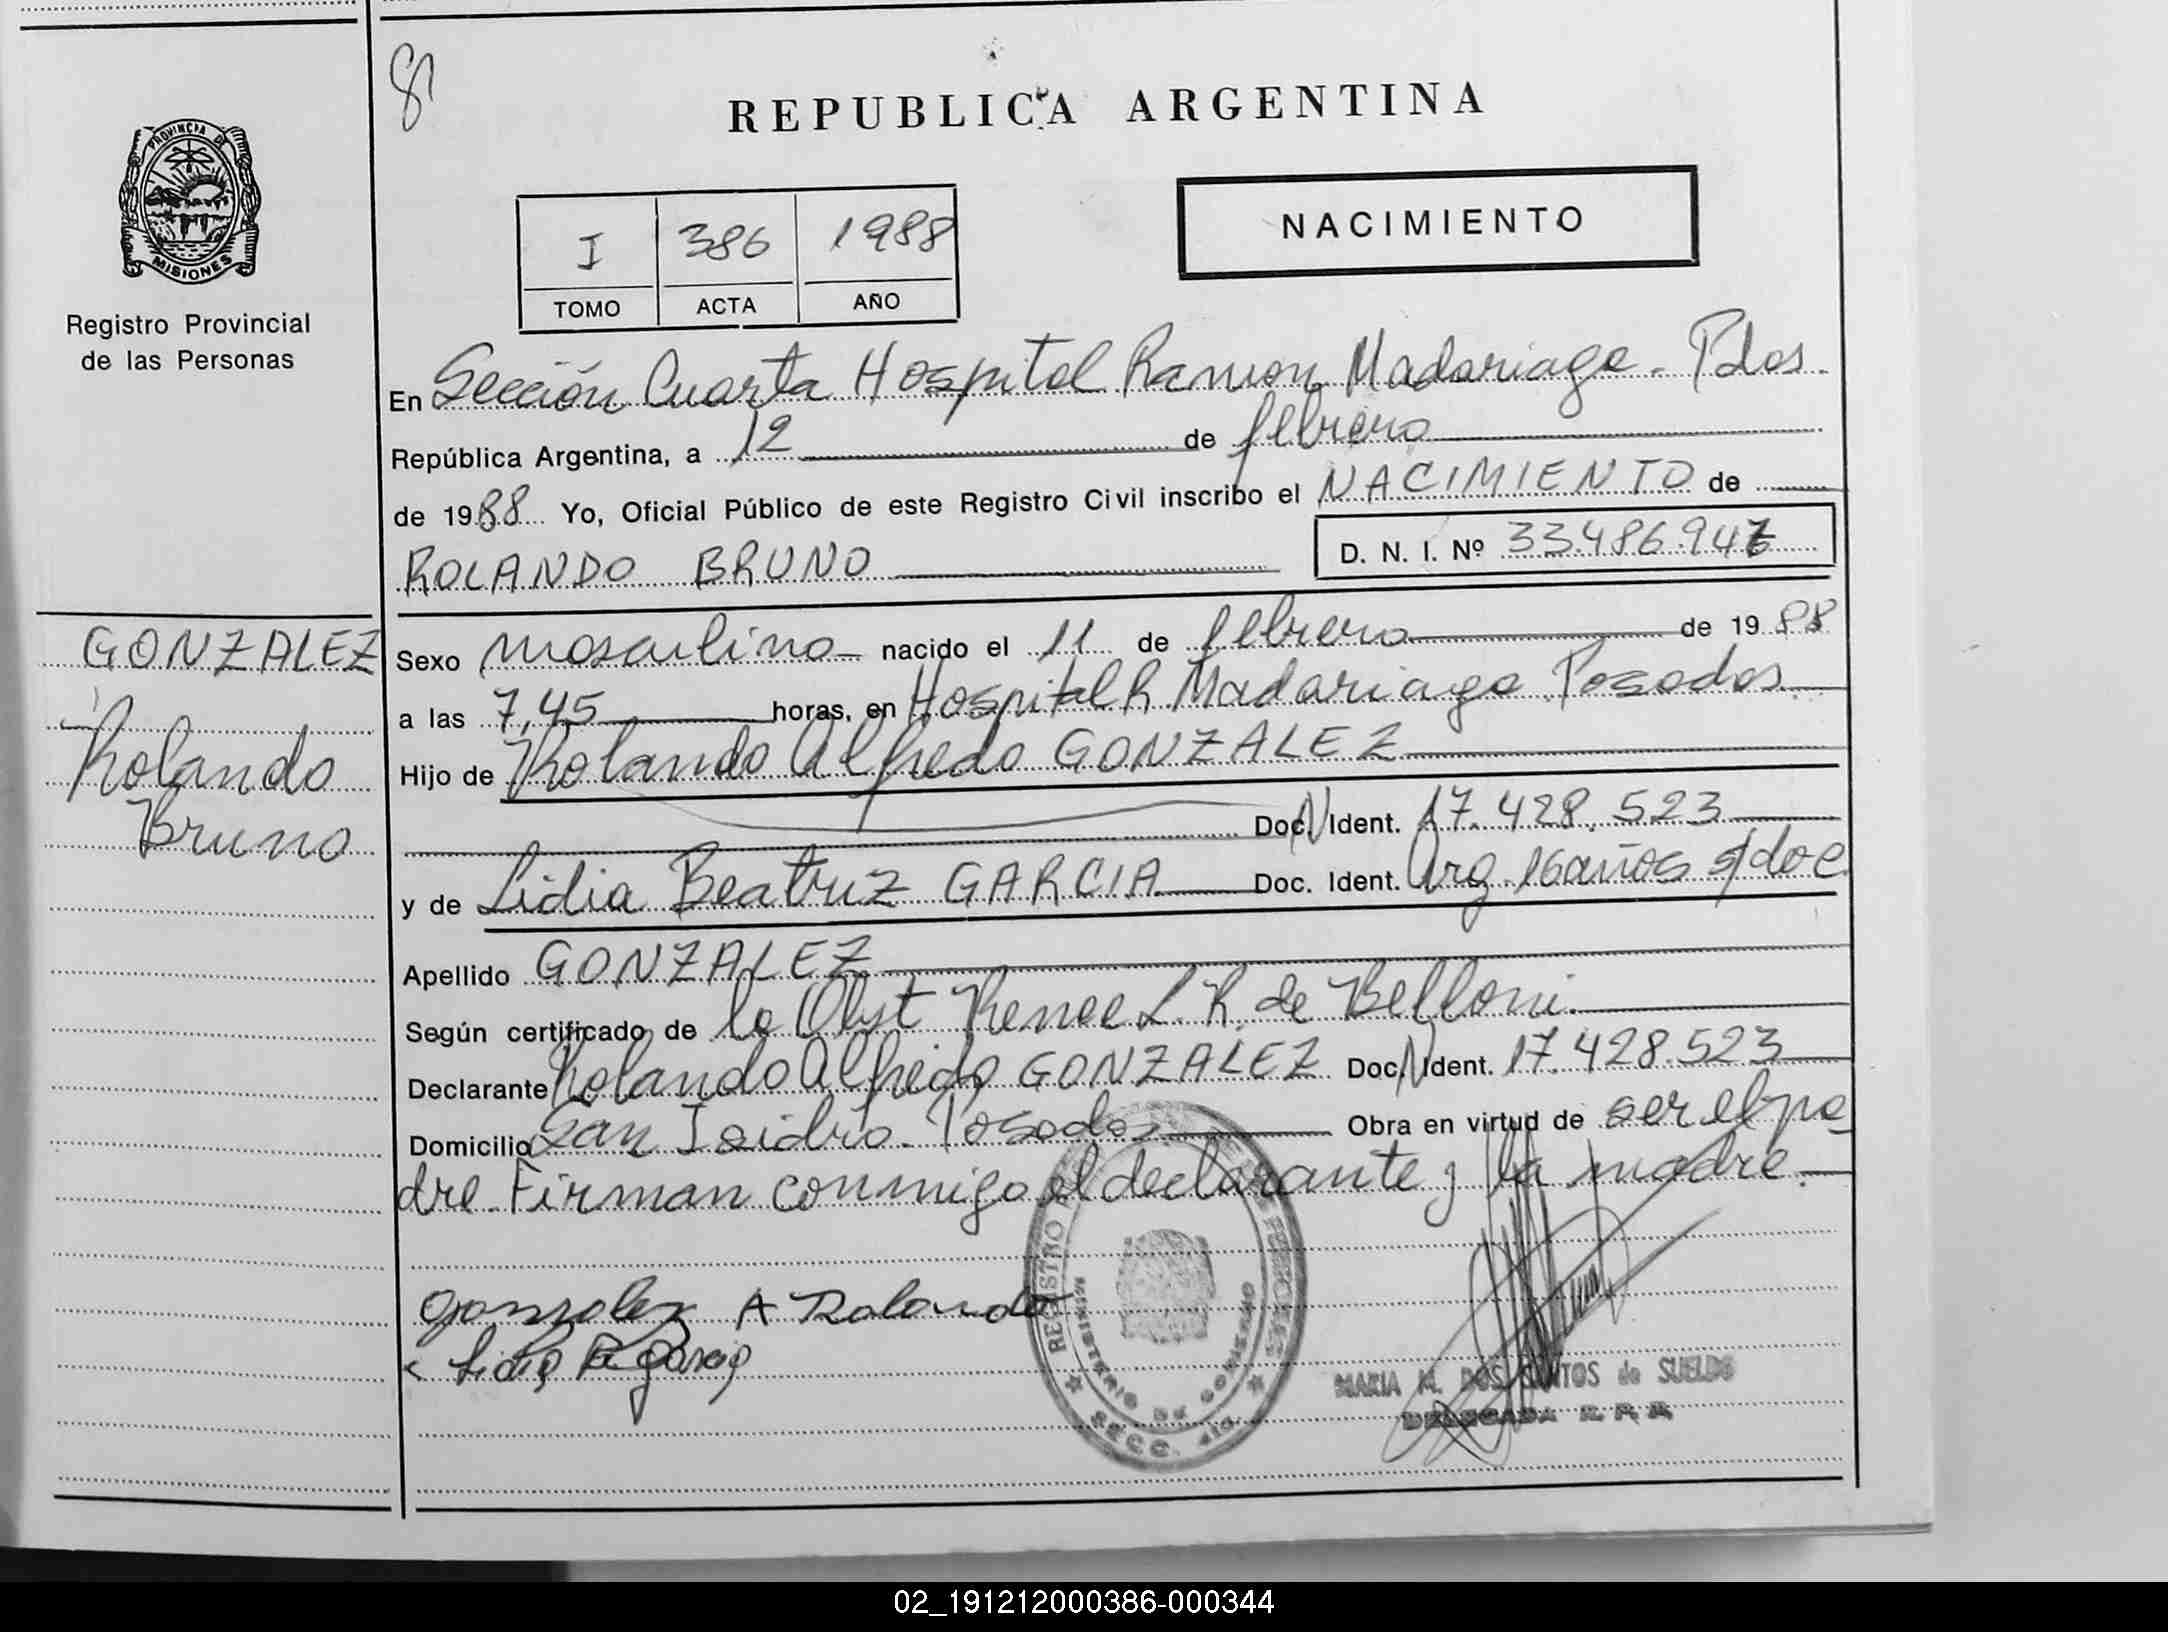 8
REPUBLICA ARGENTINA
PROVINCIA DE
MISIONES
Registro Provincial
de las Personas
NACIMIENTO
I 386 1988
TOMO ACTA AÑO
En Sección Cuarta Hospital Ramon Madariaga. Pdas.
República Argentina, a 12 de febrero
de 1988 Yo, Oficial Público de este Registro Civil inscribo el NACIMIENTO de
ROLANDO BRUNO D. N. I. Nº 33.486.94
GONZALEZ
Rolando
Bruno
Sexo masculino nacido el 11 de febrero de 1988
a las 7,45 horas, en Hospital R. Madariaga Posadas.
Hijo de Rolando Alfredo GONZALEZ
Doc. N Ident. 17.428.523
y de Lidia Beatriz GARCIA Doc. Ident. Arg. 16 años s/doc
Apellido GONZALEZ
Según certificado de la Obst Renee L. R. de Belloni.
Declarante Rolando Alfredo GONZALEZ Doc. N Ident. 17.428.523
Domicilio San Isidro. Posadas Obra en virtud de ser el pa
dre. Firman conmigo el declarante y la madre.
Gonzalez A Rolando
Lidia B garcia
REGISTRO
MINISTERIO DE GOBIERNO
SECC. 4ta.
MARIA M. DOS SANTOS de SUELDO
DELEGADA R. P. P.
02_191212000386-000344